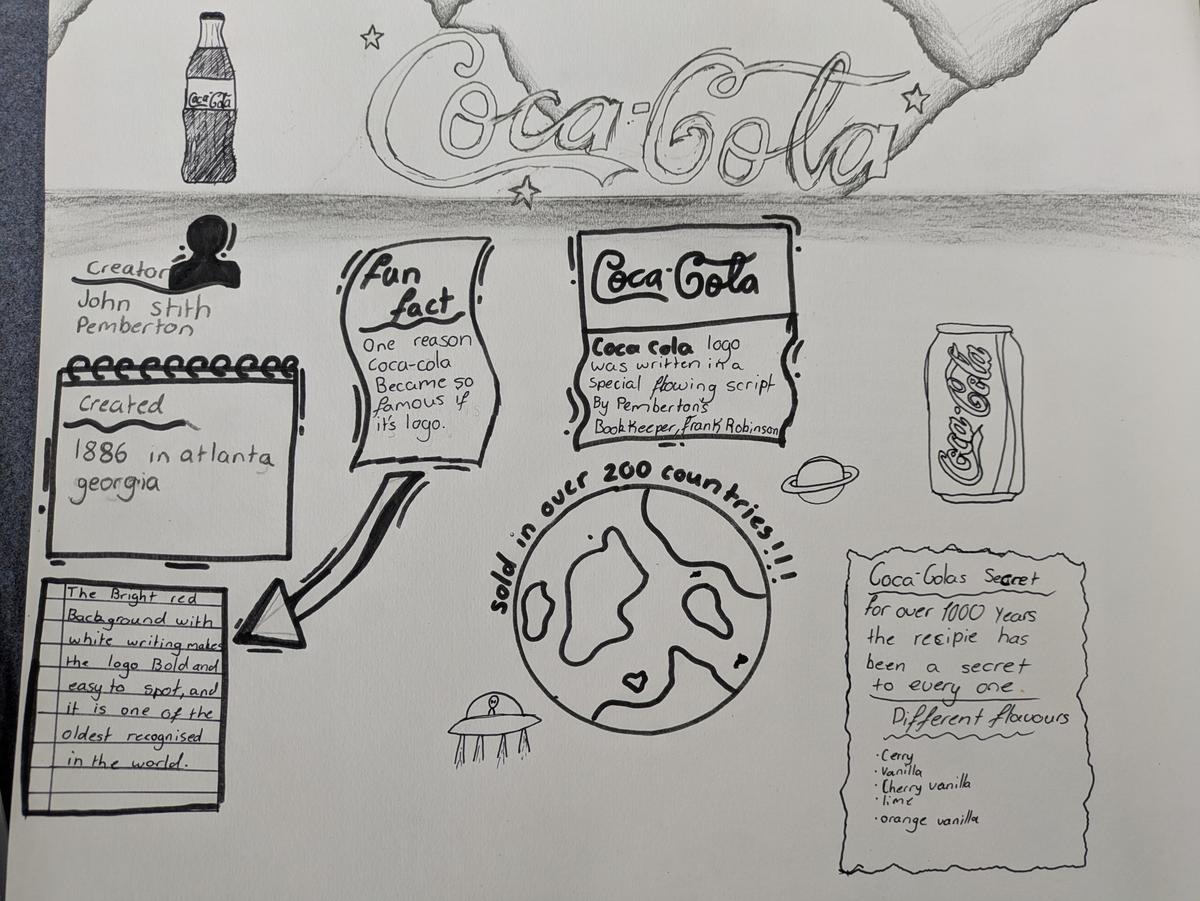 Coca-Cola
Coca-Cola
Creator
John stith
Pemberton
Created
1886 in atlanta
georgia
fun
fact
One reason
Coca-cola
Became so
famous if
it's logo.
Coca-Cola
Coca cola logo
was written in a
special flowing script
By Pemberton's
BookKeeper, frank Robinson
Coca-Cola
sold in over 200 countries!!!
The Bright red
Background with
white writing makes
the logo Bold and
easy to spot, and
it is one of the
oldest recognised
in the world.
Coca-Colas Secret
for over 1000 Years
the recipie has
been a secret
to every one.
Different flavours
· Cerry
· Vanilla
· Cherry vanilla
· lime
· orange vanilla